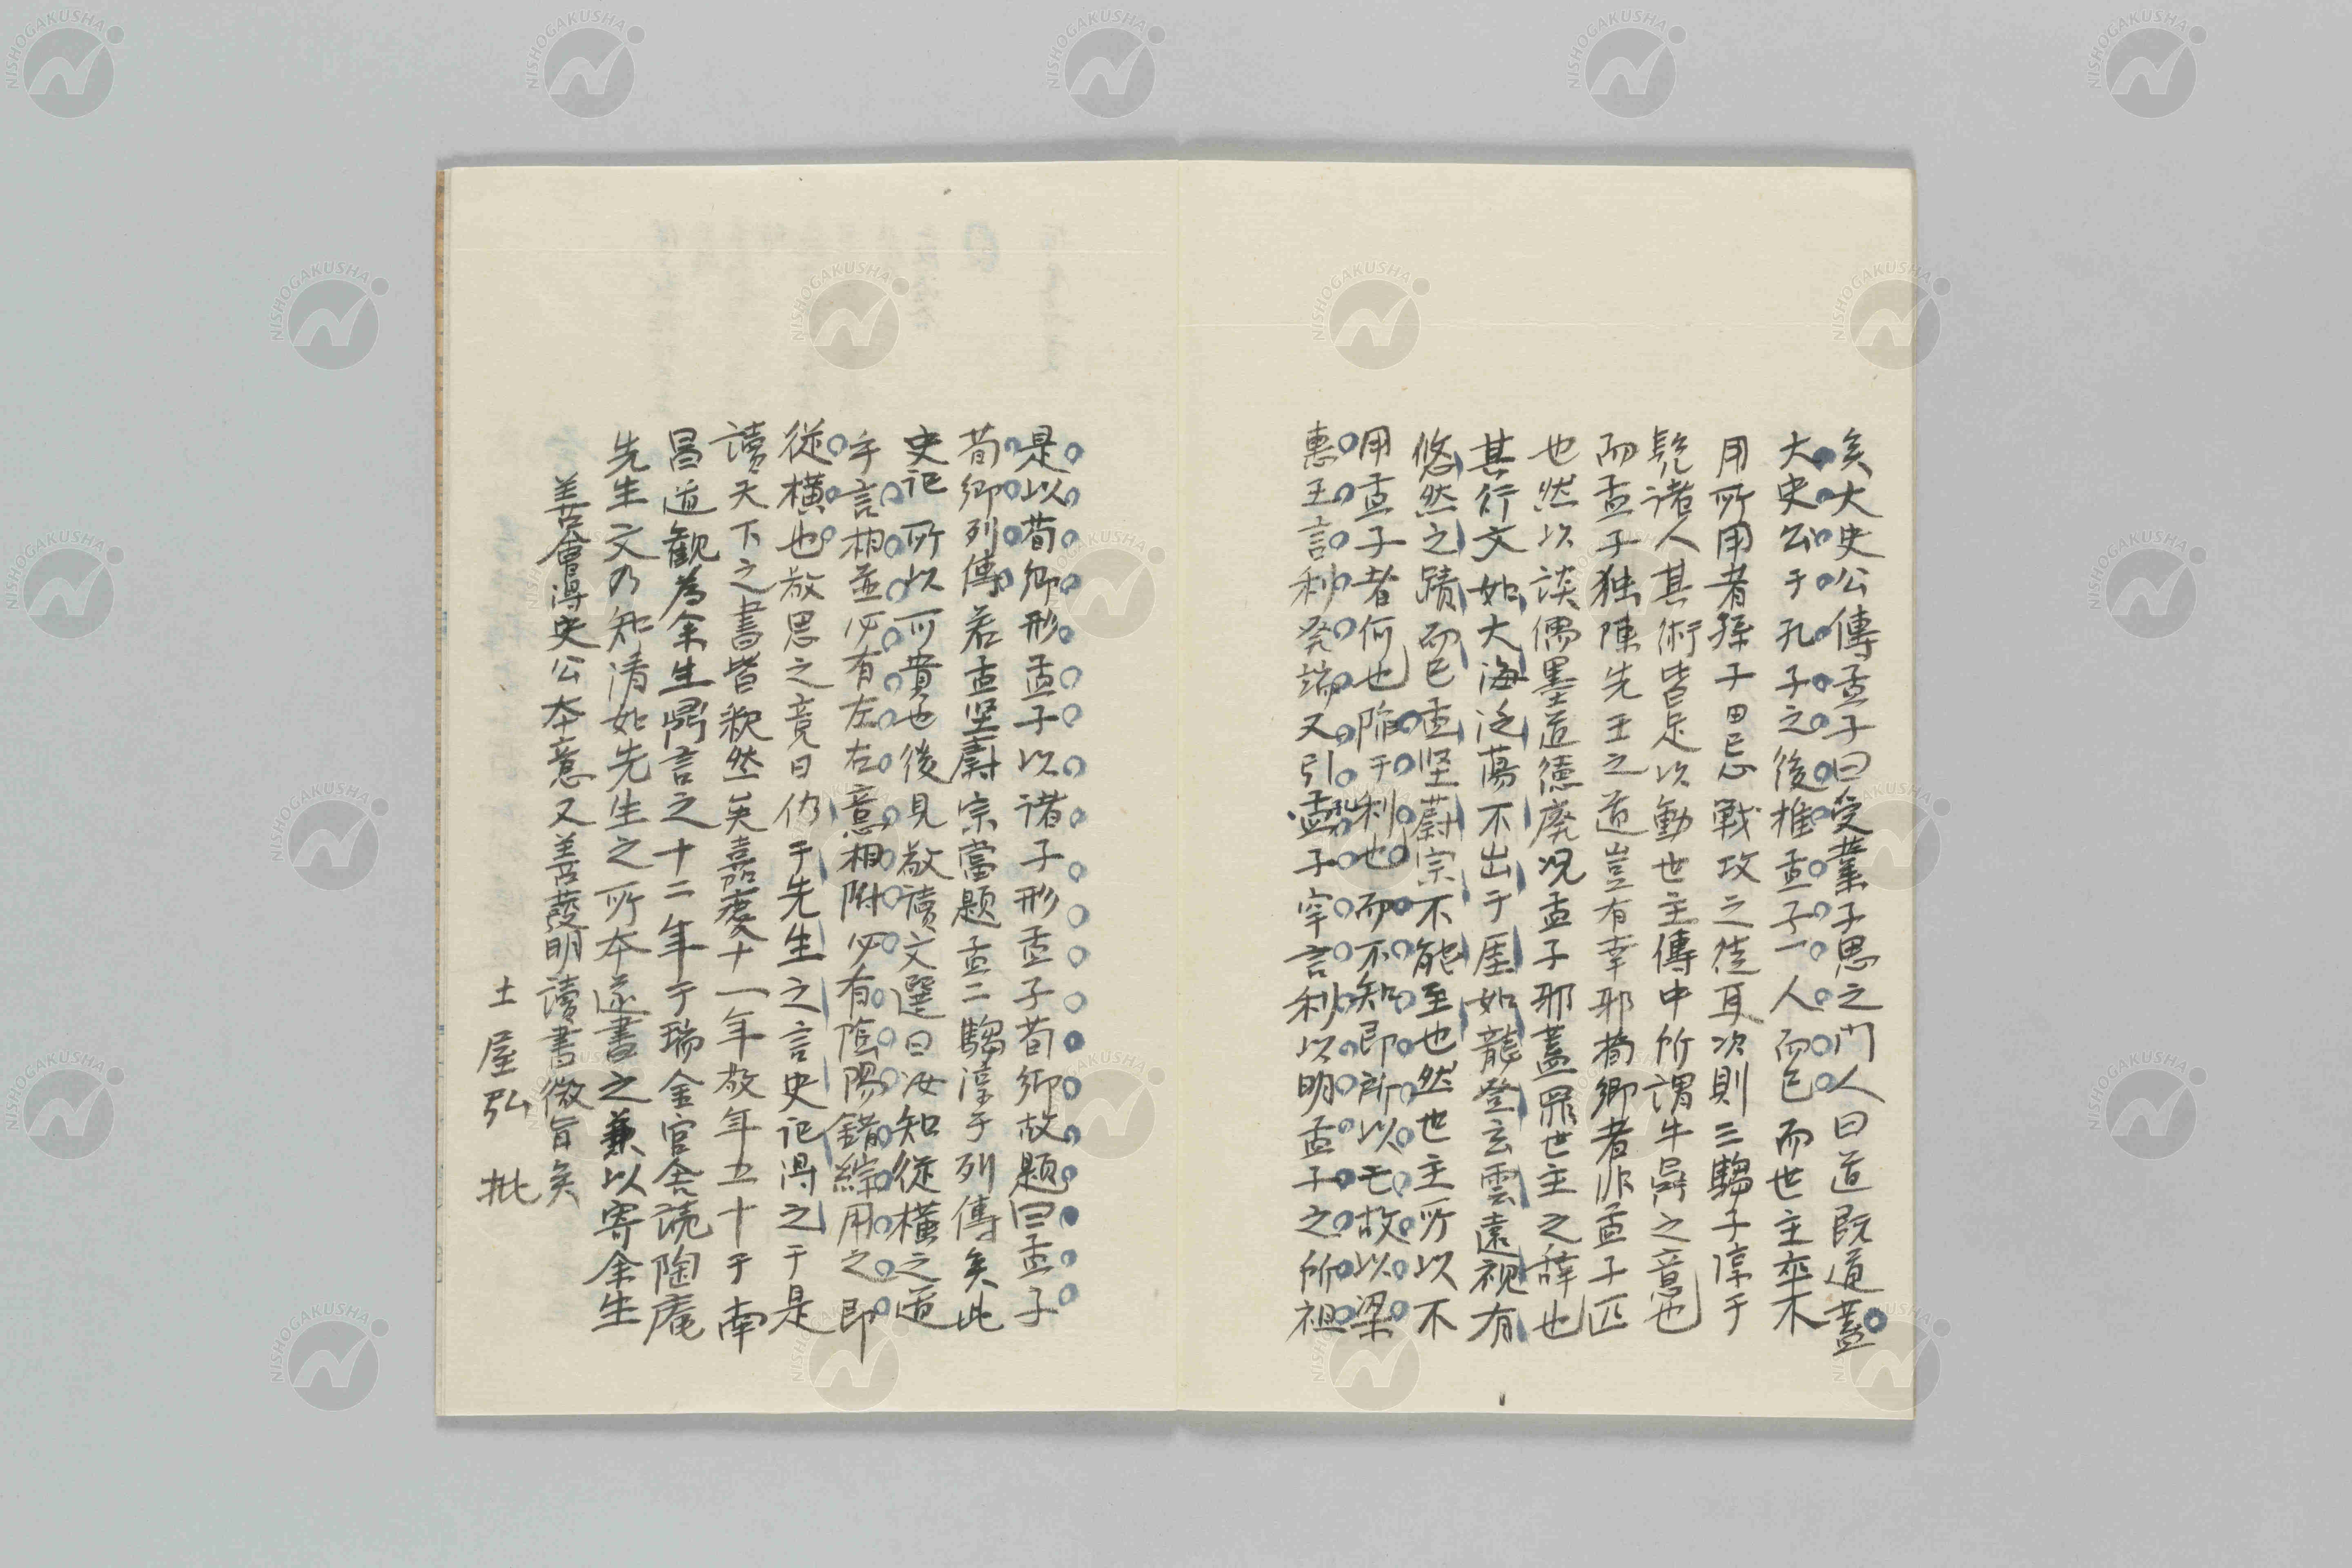 矣大史公傳孟子曰受業子思之門人曰道既通蓋
大史公于孔子之後推孟子一人而已而世主卒不
用所用者孫子田忌戰攻之徒耳次則三騶子淳于
髠諸人其術皆足以動世主傳中所謂牛鼎之意也
而孟子独陳先王之道豈有幸耶荀卿者非孟子匹
也然以談儒墨道德廃況孟子耶蓋罪世主之辞也
其行文如大海泛蕩不出于厓如龍登玄雲遠視有
悠然之蹟而已孟堅蔚宗不能至也然世主所以不
用孟子者何也陷于利也而不知即所以亡故以梁
惠王言利発端又引孟子罕言利以明孟子之所祖
是以荀卿形孟子以諸子形孟子荀卿故題曰孟子
荀卿列傳若孟堅蔚宗當題孟二騶淳于列傳矣此
史記所以可貴也後見敬讀文選曰汝知從横之道
乎言相並必有左右意相附必有陰陽錯綜用之即
從横也敬思之竟日仍于先生之言史記得之于是
讀天下之書皆釈然矣嘉慶十一年敬年五十于南
昌道観為余生鼎言之十二年于瑞金官舎読陶庵
先生文乃知清如先生之所本遂書之兼以寄余生
善會得史公本意又善發明讀書微旨矣
土屋弘 批
NISHOGAKUSHA